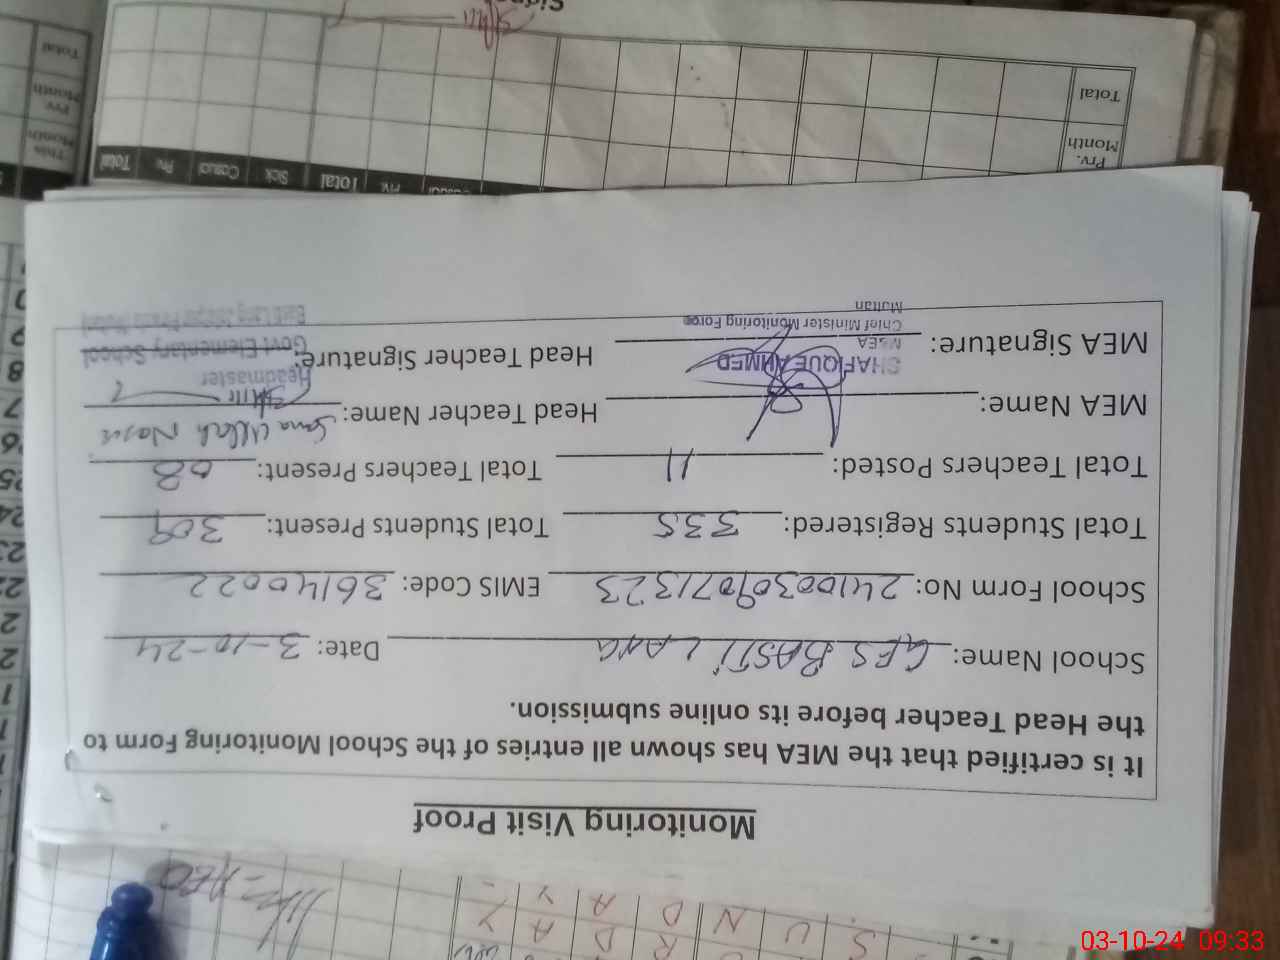 Monitoring Visit Proof
It is certified that the MEA has shown all entries of the School Monitoring Form to
the Head Teacher before its online submission.
School Name: GES BASTI LANG Date: 3-10-24
School Form No: 24100309071323 EMIS Code: 36140022
Total Students Registered: 335 Total Students Present: 309
Total Teachers Posted: 11 Total Teachers Present: 08
MEA Name: Head Teacher Name: Sana Ullah Nasir
MEA Signature: Head Teacher Signature:
SHAFIQUE AHMED
M&EA
Chief Minister Monitoring Force
Multan
Headmaster
Govt Elementary School
Total
Prv. Month
This Month
Total Prv. Casual Sick Total Prv. Casual
Prv. Month
Total
S U N D A Y
03-10-24 09:33